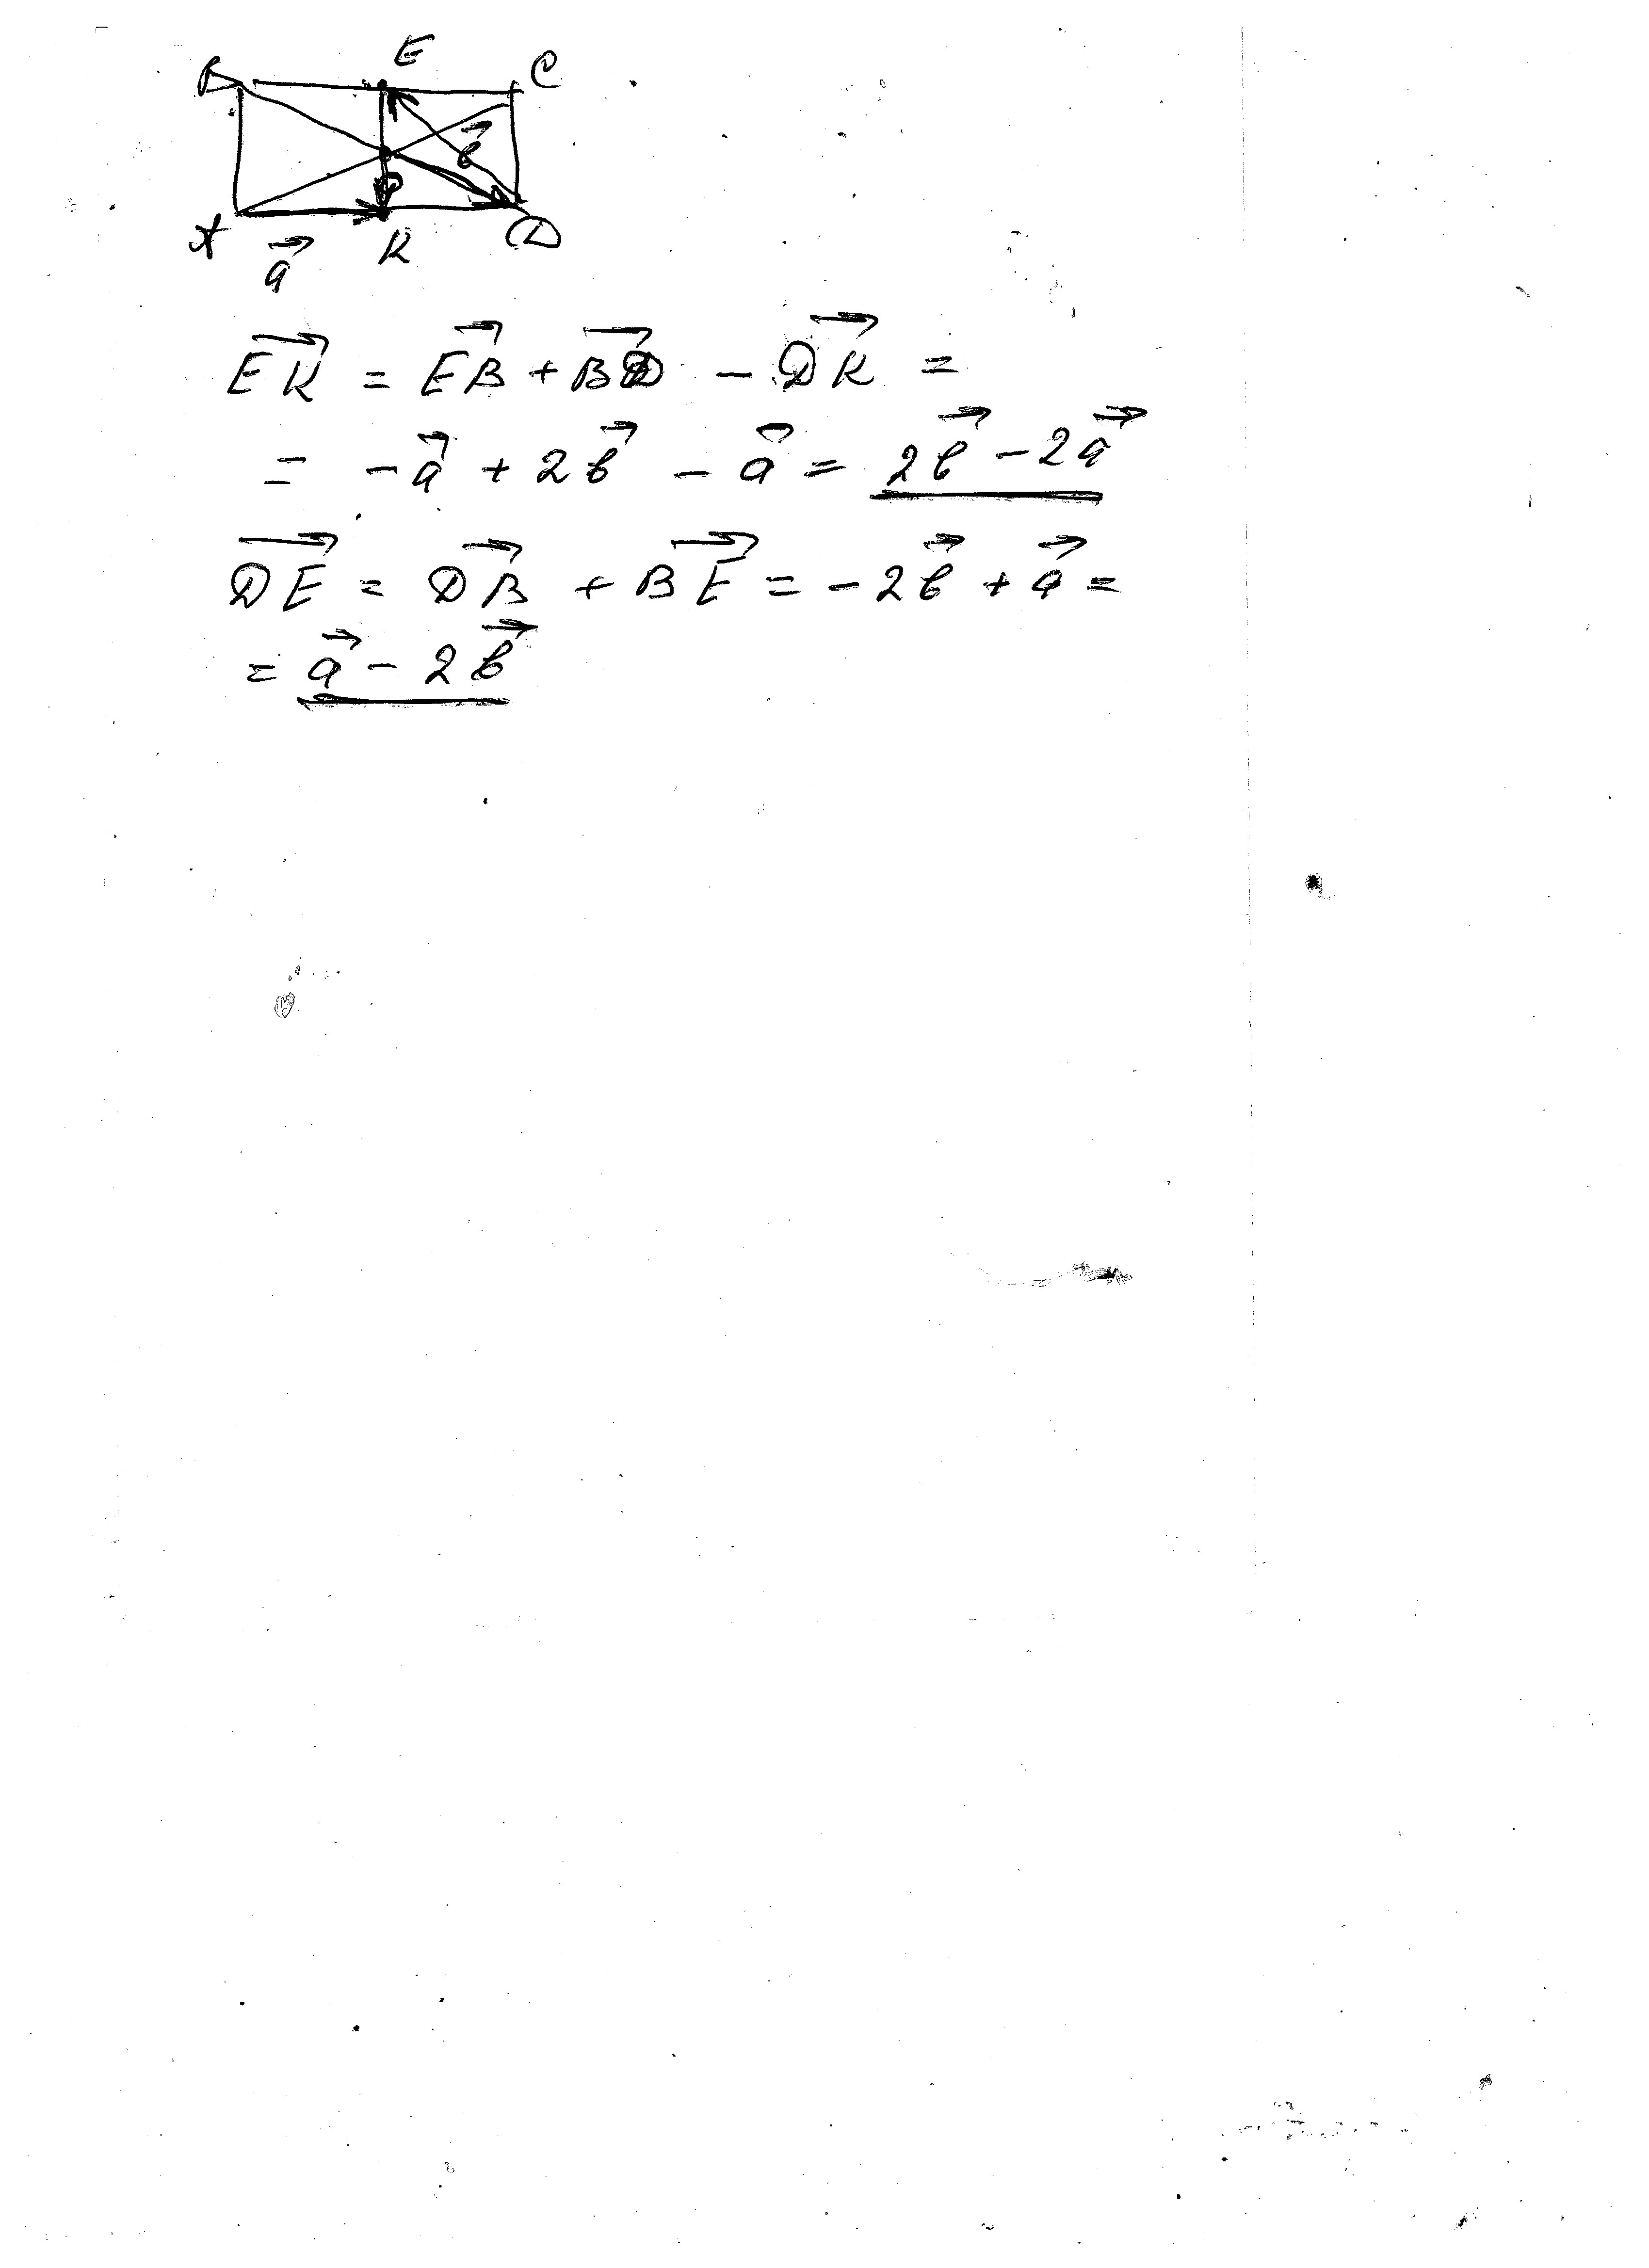 E
B C
b⃗
O
A K D
a⃗
EK⃗ = EB⃗ + BD⃗ - DK⃗ =
= -a⃗ + 2b⃗ - a⃗ = 2b⃗ - 2a⃗
DE⃗ = DB⃗ + BE⃗ = -2b⃗ + a⃗ =
= a⃗ - 2b⃗